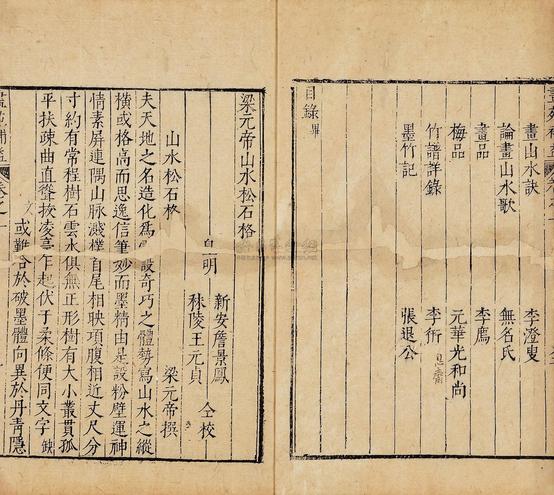 畫山水訣 李澄叟
論畫山水歌 無名氏
畫品 李廌
梅品 元華光和尚
竹譜詳錄 李衎 息齋
墨竹記 張退公
目錄畢
梁元帝山水松石格
皇明 新安詹景鳳
秣陵王元貞 仝校
山水松石格 梁元帝撰
夫天地之名造化爲 設奇巧之體勢寫山水之縱
橫或格高而思逸信筆妙而墨精由是設粉壁運神
情素屏連隅山脉濺樸首尾相映項腹相近丈尺分
寸約有常程樹石雲水俱無正形樹有大小叢貫孤
平扶疎曲直聳拔凌亭乍起伏于柔條便同文字 缺
或難合於破墨體向異於丹青隱